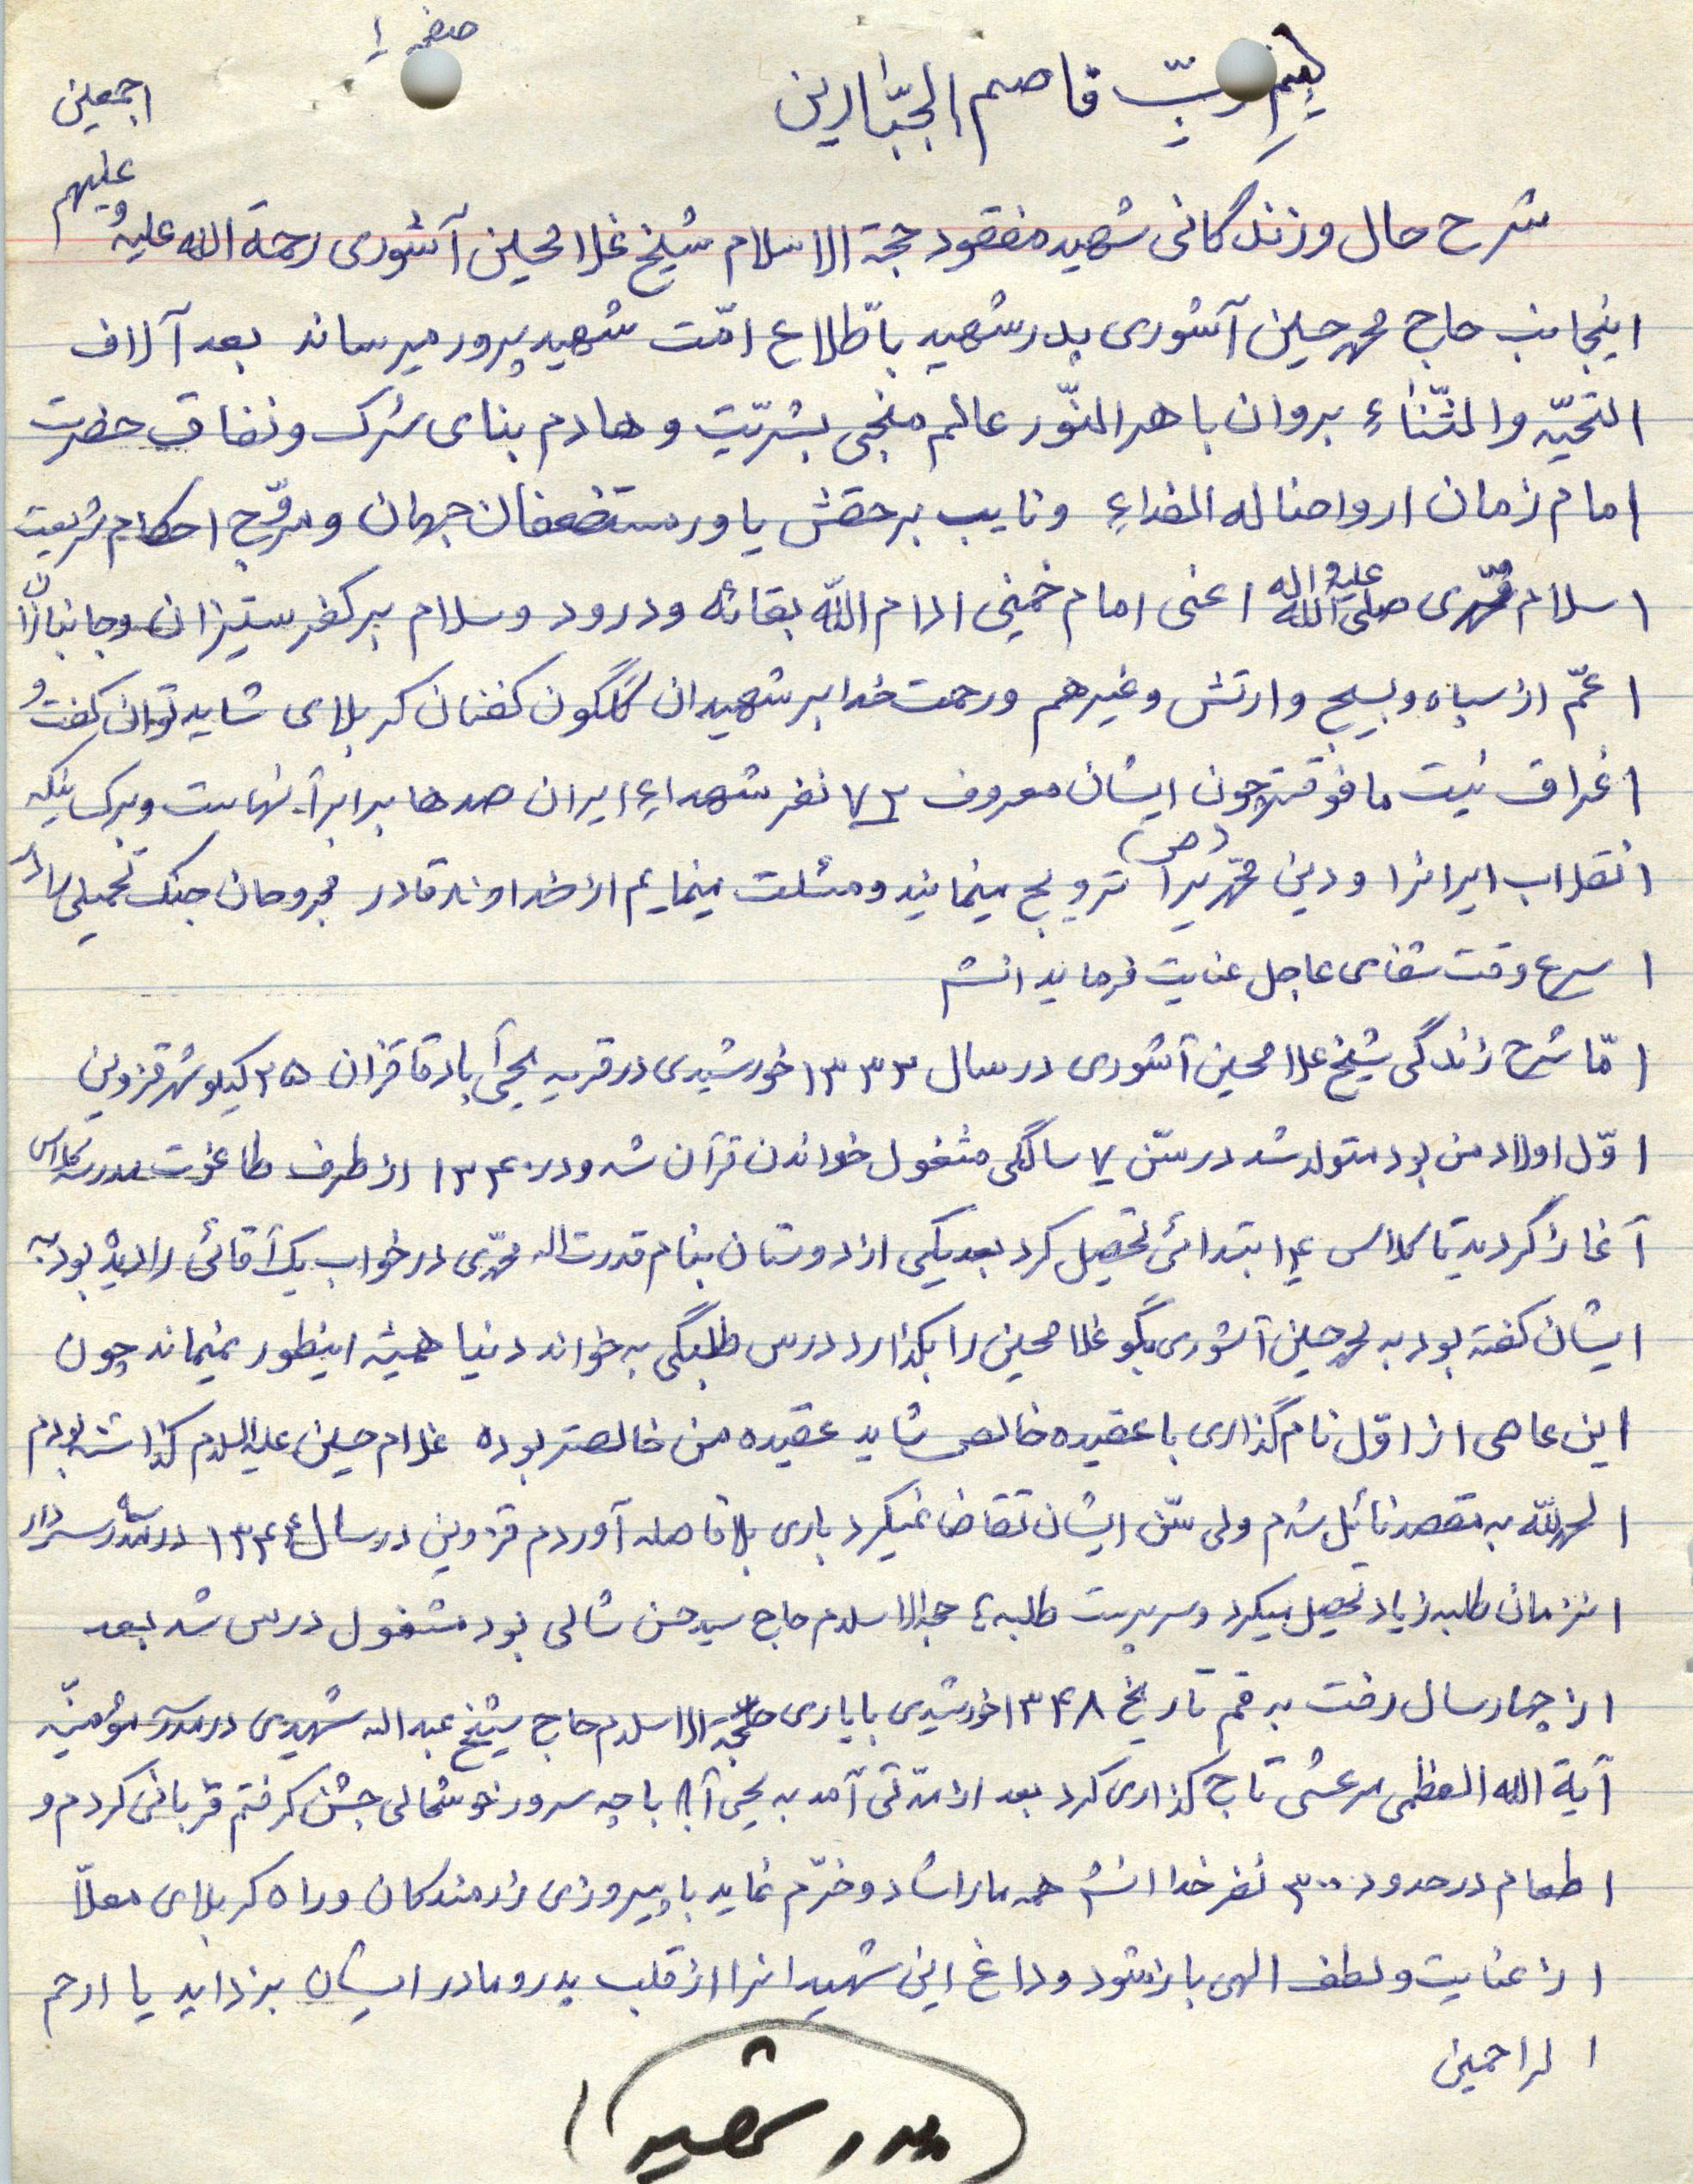 صفحه ۱
بسم ربّ قاصم الجبّارین
شرح حال و زندگانی شهید مفقود حجة الاسلام شیخ غلامحسین آشوری رحمة الله علیه و علیهم اجمعین
اینجانب حاج محمدحسین آشوری پدر شهید باطّلاع امّت شهیدپرور میرساند بعد آلاف
التحیّه والثّناء بروان باهرالنّور عالم منجی بشریّت و هادم بنای شرک و نفاق حضرت
امام زمان ارواحنا له الفداء و نایب برحقش یاور مستضعفان جهان و مروّج احکام شریعت
اسلام محمّدی صلی الله علیه و اله اعنی امام خمینی ادام اللّه بقائه و درود و سلام بر کفرستیزان و جانبازان
اعمّ از سپاه و بسیج و ارتش و غیرهم و رحمت خدا بر شهیدان گلگون کفنان کربلای شاید توان گفت و
اغراق نیست مافوقتر چون ایشان معروف ۷۲ نفر شهداء ایران صدها برابر آنهاست و بر کسانیکه
انقلاب ایرانرا و دین محمّدیرا (ص) ترویج مینمایند و مسئلت مینمایم از خداوند قادر مجروحان جنگ تحمیلی را در
اسرع وقت شفای عاجل عنایت فرماید انشم
امّا شرح زندگی شیخ غلامحسین آشوری در سال ۱۳۳۳ خورشیدی در قریه یحیی آباد قاقزان ۲۵ کیلو شهر قزوین
اوّل اولاد من بود متولد شد در سّن ۷ سالگی مشغول خواندن قرآن شد و در ۱۳۴۰ از طرف طاغوت مدرسه کلاس
آغاز گردید تا کلاس ۴ ابتدائی تحصیل کرد بعد یکی از دوستان بنام قدرت اله محمّدی در خواب یک آقائی را دیده بود به
ایشان گفته بود به محمدحسین آشوری بگو غلامحسین را بگذارد درس طلبگی به خواند دنیا همیشه اینطور نمیماند چون
این عاصی از اوّل نام گذاری با عقیده خالص شاید عقیده من خالصتر بوده غلام حسین علیه السلام گذاشته بودم
الحمدللّه به مقصد نائل شدم ولی سّن ایشان تقاضا نمیکرد باری بلافاصله آوردم قزوین در سال ۱۳۴۴ در مدرسه سردار
انزمان طلبه زیاد تحصیل میکرد و سرپرست طلبه ها حجة الاسلام حاج سید حسن شالی بود مشغول درس شد بعد
از چهار سال رفت به قم تاریخ ۱۳۴۸ خورشیدی با یاری حجّة الاسلام حاج شیخ عبداله شهیدی در مدرسه مؤمنیّه
آیة الله العظمی مرعشی تاج گذاری کرد بعد از مدّتی آمد به یحیی آباد با چه سرور خوشحالی جشن گرفتم قربانی کردم و
اطعام در حدود ۳۰۰ نفر خدا انشم همه مارا شاد و خرّم نماید با پیروزی رزمندگان و راه کربلای معلاّ
از عنایت و لطف الهی باز شود و داغ این شهیدانرا از قلب پدر و مادر ایشان بزداید یا ارحم
الراحمین
پدر شهید